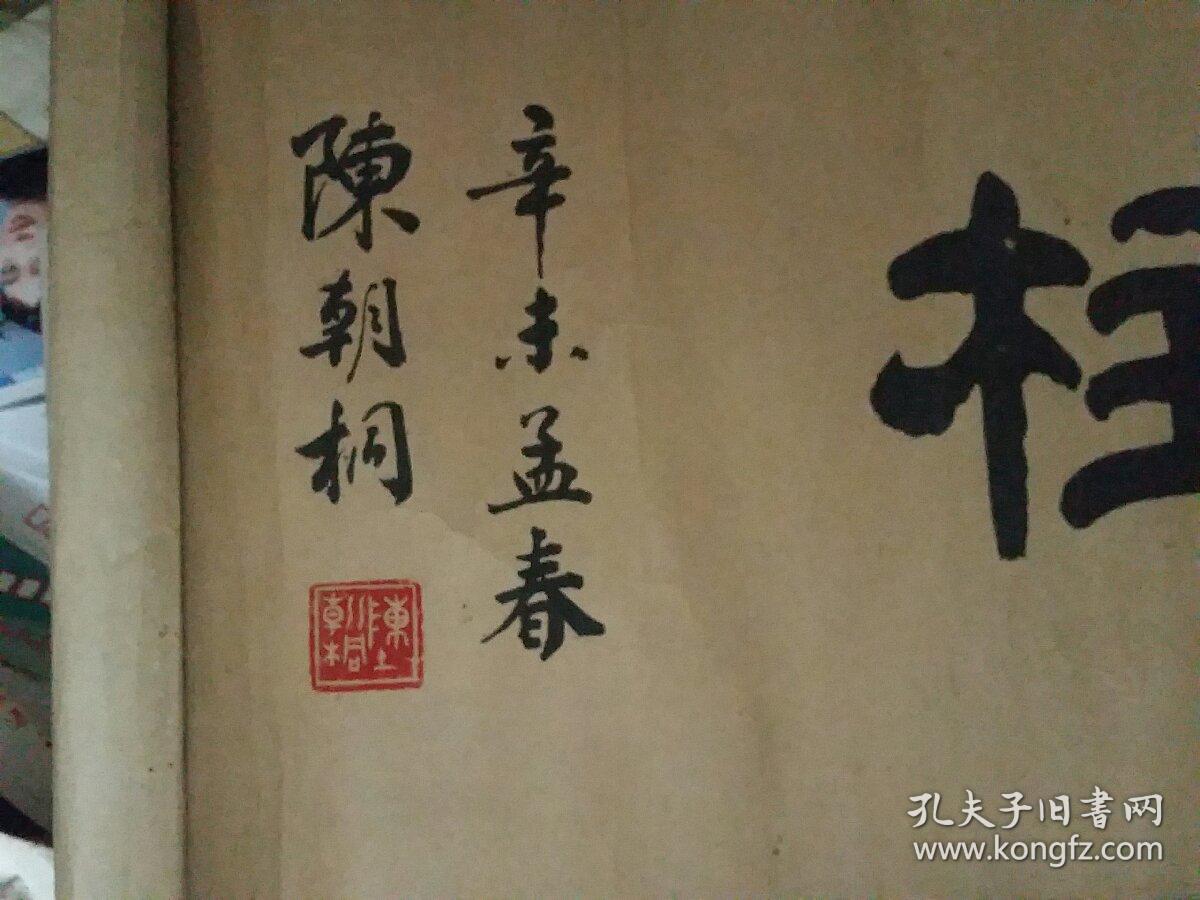 柱
辛未孟春
陳朝桐
陳朝桐
孔夫子旧書网
www.kongfz.com